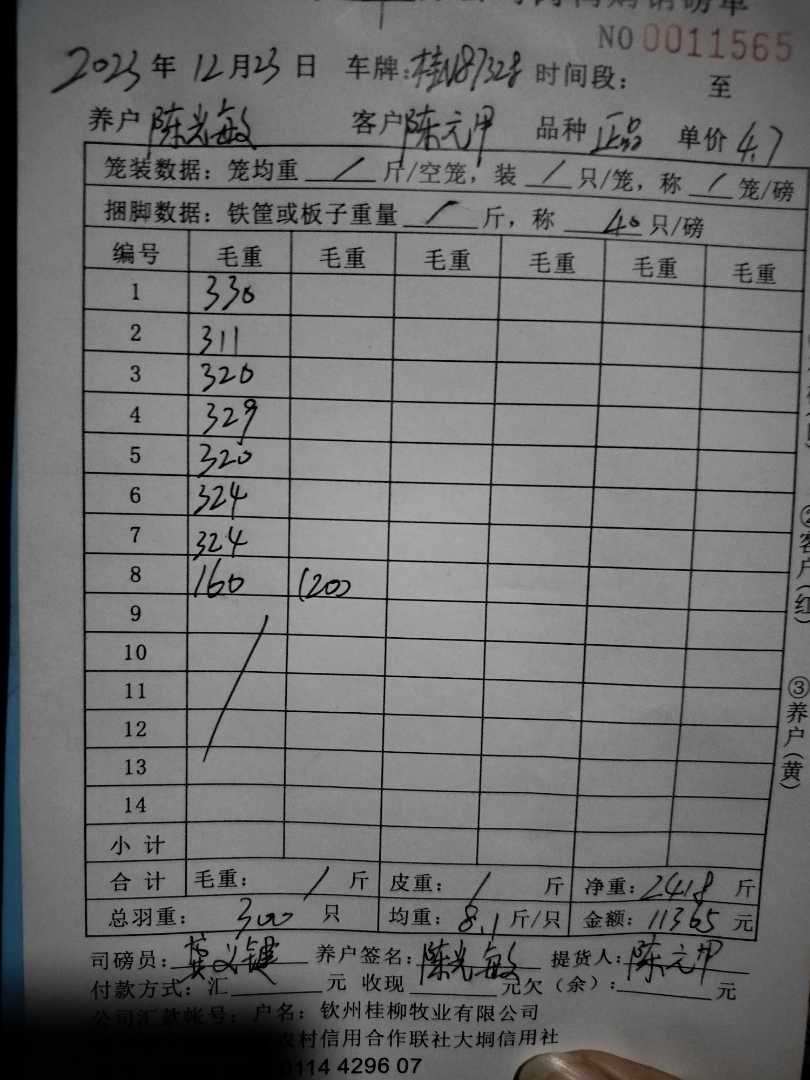 购销磅单
NO 0011565
2023 年 12月23日 车牌:桂N87328 时间段: 至
养户 陈光敏 客户 陈元甲 品种 正品 单价 4.7
笼装数据:笼均重 / 斤/空笼,装 / 只/笼,称 / 笼/磅
捆脚数据:铁筐或板子重量 / 斤,称 40 只/磅
编号 毛重 毛重 毛重 毛重 毛重 毛重
1 330
2 311
3 320
4 329
5 320
6 324
7 324
8 160 (20)
9
10
11
12
13
14
小 计
合 计 毛重: / 斤 皮重: / 斤 净重: 2418 斤
总羽重: 300 只 均重: 8.1 斤/只 金额: 11365 元
司磅员: 义键 养户签名: 陈光敏 提货人: 陈元甲
付款方式:汇 元 收现 元欠(余): 元
公司汇款帐号:户名:钦州桂柳牧业有限公司
农村信用合作联社大垌信用社
0114 4296 07
客户(红)
③养户(黄)